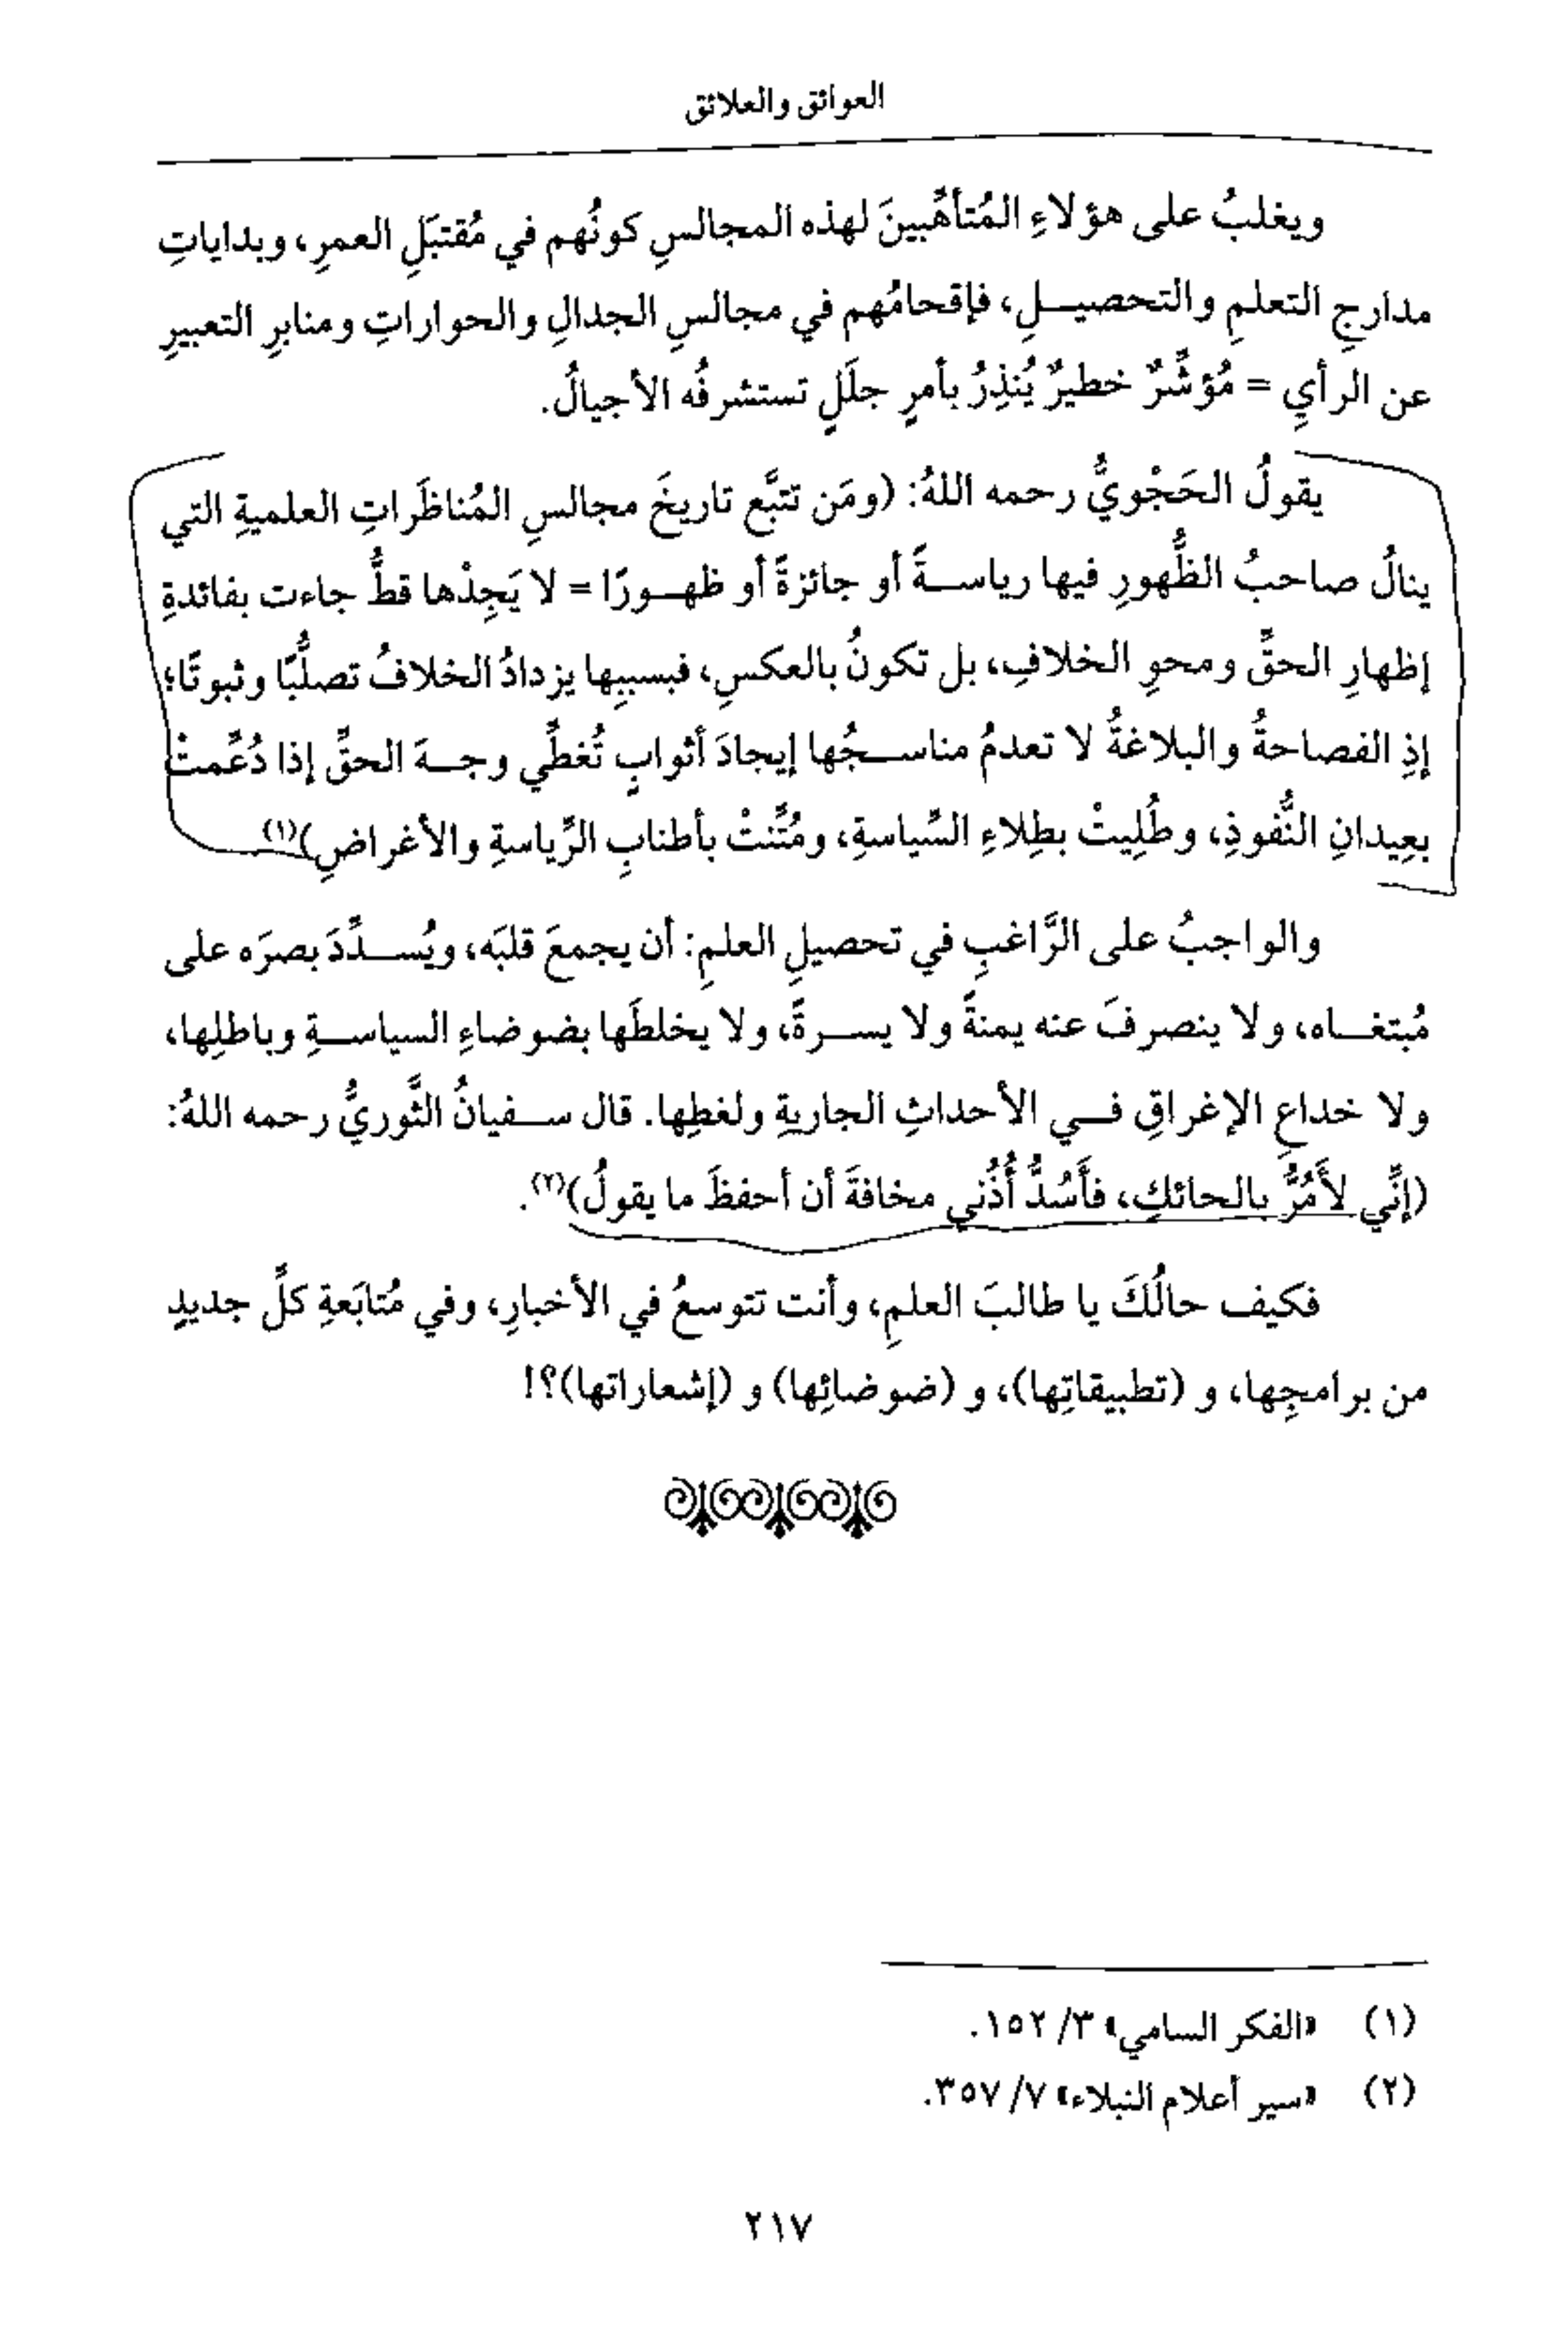 العوائق والعلائق
ويغلبُ على هؤلاءِ المُتأهِّبينَ لهذه المجالسِ كونُهم في مُقتبَلِ العمرِ، وبداياتِ
مدارجِ التعلمِ والتحصيــلِ، فإقحامُهم في مجالسِ الجدالِ والحواراتِ ومنابرِ التعبيرِ
عن الرأيِ = مُؤشِّرٌ خطيرٌ يُنذِرُ بأمرٍ جلَلٍ تستشرفُه الأجيالُ.
يقولُ الحَجْويُّ رحمه اللهُ: (ومَن تتبَّع تاريخَ مجالسِ المُناظَراتِ العلميةِ التي
ينالُ صاحبُ الظُّهورِ فيها رياســةً أو جائزةً أو ظهــورًا = لا يَجِدْها قطُّ جاءت بفائدةِ
إظهارِ الحقِّ ومحوِ الخلافِ، بل تكونُ بالعكسِ، فبسببِها يزدادُ الخلافُ تصلُّبًا وثبوتًا؛
إذِ الفصاحةُ والبلاغةُ لا تعدمُ مناســجُها إيجادَ أثوابٍ تُغطِّي وجــهَ الحقِّ إذا دُعِّمتْ
بعِيدانِ النُّفوذِ، وطُلِيتْ بطِلاءِ السِّياسةِ، ومُتِّنتْ بأطنابِ الرِّياسةِ والأغراضِ)(١)
والواجبُ على الرَّاغبِ في تحصيلِ العلمِ: أن يجمعَ قلبَه، ويُســدِّدَ بصرَه على
مُبتغــاه، ولا ينصرفَ عنه يمنةً ولا يســرةً، ولا يخلطَها بضوضاءِ السياســةِ وباطلِها،
ولا خداعِ الإغراقِ فــي الأحداثِ الجاريةِ ولغطِها. قال ســفيانُ الثَّوريُّ رحمه اللهُ:
(إنِّي لأَمُرُّ بالحائكِ، فأَسُدُّ أُذُني مخافةَ أن أحفظَ ما يقولُ)(٢).
فكيف حالُكَ يا طالبَ العلمِ، وأنت تتوسعُ في الأخبارِ، وفي مُتابَعةِ كلِّ جديدٍ
من برامجِها، و (تطبيقاتِها)، و (ضوضائِها) و (إشعاراتها)؟!
(١) «الفكر السامي» ٣/ ١٥٢.
(٢) «سير أعلام النبلاء» ٧/ ٣٥٧.
٢١٧